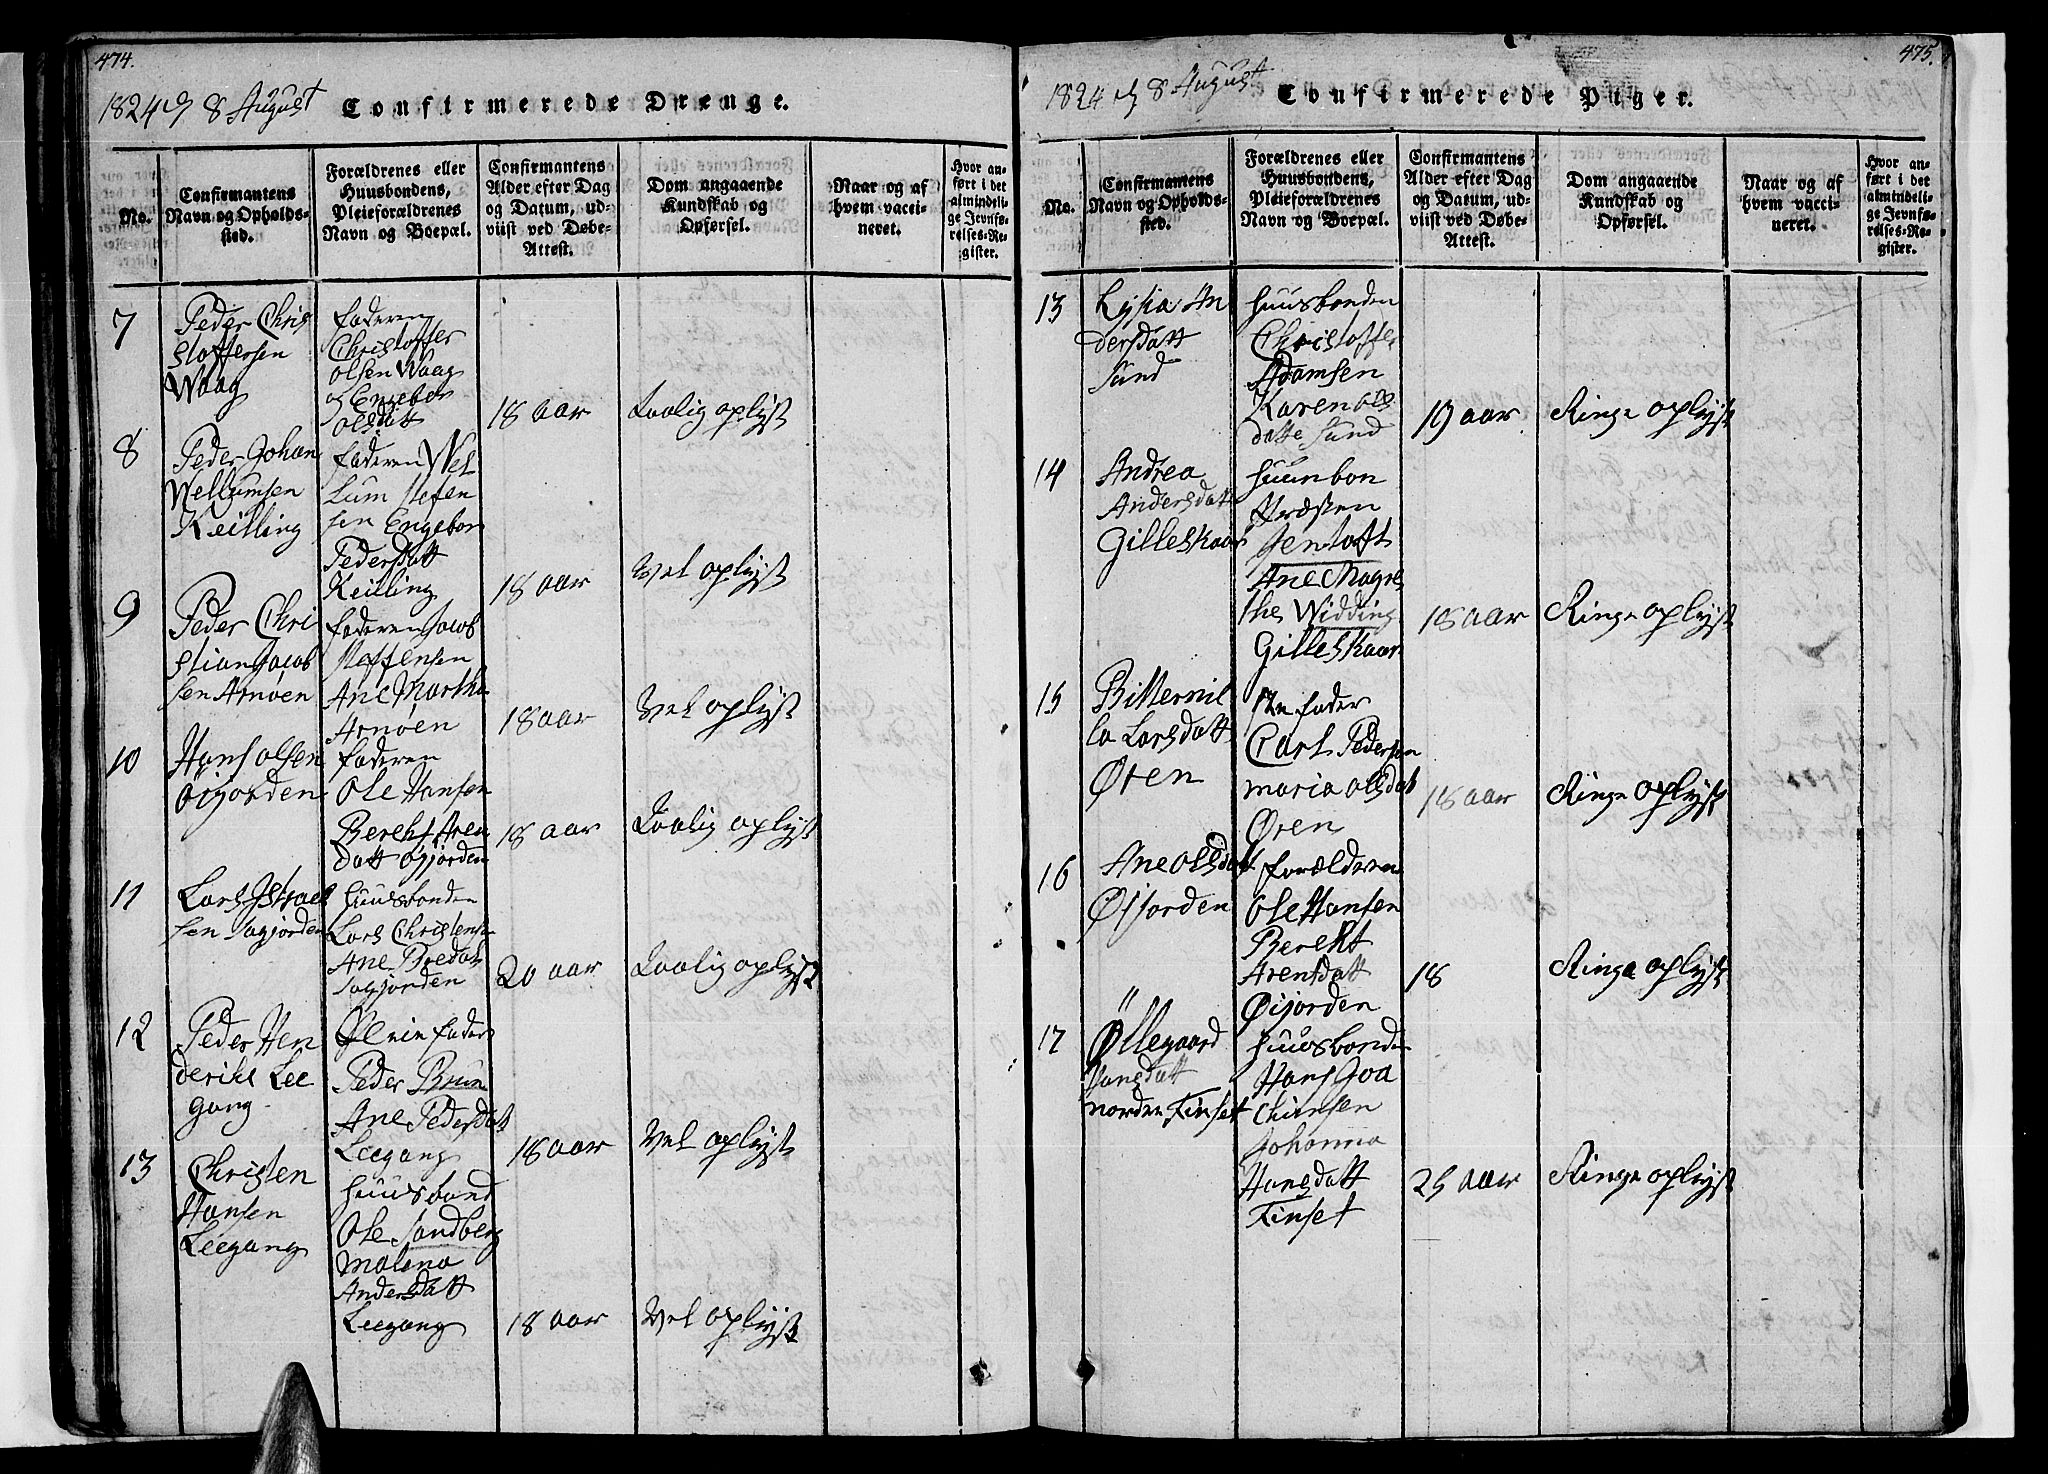 474.
1824 d 8 August Confirmerede Drenge.
No.
Confirmantens
Navn og Opholds-
sted.
Forældrenes eller
Huusbondens,
Pleieforældrenes
Navn og Boepæl.
Confirmantens
Alder efter Dag
og Datum, ud-
viist ved Døbe-
Attest.
Dom angaaende
Kundskab og
Opførsel.
Naar og af
hvem vacci-
neret.
Hvor an-
ført i det
almindeli-
ge Jevnfø-
relses-Re-
gister.
7
Peder Chris
stoffersen
Waag
faderen
Christoffer
olsen Waag
og Engebor
olsdatt
18 aar
Lovlig oplyst
8
Peder Johan
Wellumsen
Keilling
faderen Wel
lum Stefen
sen Engebor
Pedersdatt
Keilling
18 aar
Vel oplyst
9
Peder Chri
stian Jacob
sen Arnøen
faderen Jacob
Steffensen
Ane Martha
Arnøen
18 aar
Vel oplyst
10
Hans olsen
Øijorden
faderen
Ole Hansen
Berekt Aren
datt Øjjorden
18 aar
Lovlig oplyst
11
Lars Istrael
sen Søgjorden
Huusbonden
Lars Christensen
Ane Bredat
Søgjorden
20 aar
Lovlig oplyst
12
Peder Hen
derikc Lee
gang
Pleiefader
Peder Brun
Ane Pedersdat
Leegang
18 aar
Vel oplyst
13
Christen
Hansen
Leegang
Huusbond
Ole Sandberg
Malena
Andersdatt
Leegang
18 aar
Vel oplyst
475.
1824 d 8 August Confirmerede Piger.
No.
Confirmantens
Navn og Opholds-
sted.
Forældrenes eller
Huusbondens,
Pleieforældrenes
Navn og Boepæl.
Confirmantens
Alder efter Dag
og Datum, ud-
viist ved Døbe-
Attest.
Dom angaaende
Kundskab og
Opførsel.
Naar og af
hvem vacci-
neret.
Hvor an-
ført i det
almindelig
ge Jevnfø-
relses-Re-
gister.
13
Lysia An
dersdatt
Sund
Huusbonden
Christoffer
Adamsen
Karen ols
datte Sund
19 aar
Ringe oplyst
14
Andrea
Andersdatt
Gilleskaar
Huusbon
Præsten
Jentoft
Ane Magre
the Widding
Gilleskaar
18 aar
Ringe oplyst
15
Bitternil
la Larsdatt
Øren
Ste fader
Carl Pedersen
maria olsdat
Øren
18 aar
Ringe oplyst
16
Ane olsdatt
Øijorden
forælderen
Ole Hansen
Berekt
Arensdatt
Øijorden
18
Ringe oplyst
17
Øllegaard
Hansdatt
norden Finset
Huusbonden
Hans Joa
chimsen
Johanna
Hansdatt
Finset
25 aar
Ringe oplyst